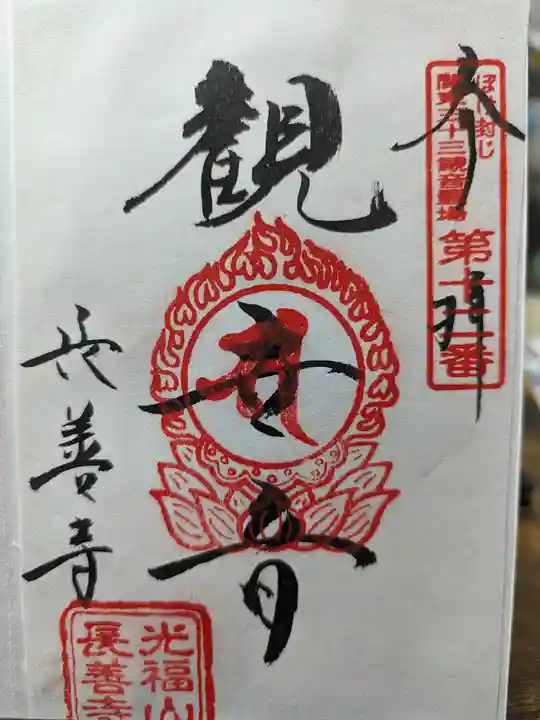 参拝
ぼけ封じ
関東三十三観音霊場
第十二番
觀世音
長善寺
光福山
長善寺